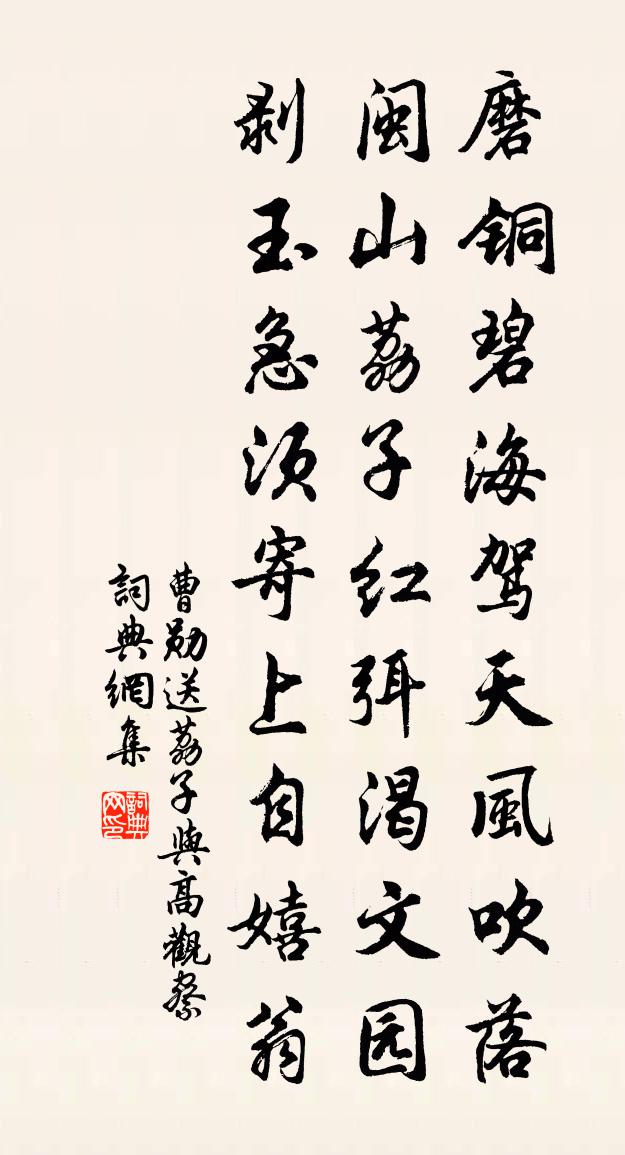 磨铜碧海驾天風吹落
闽山荔子红弭渴文园
剥玉急须寄上自嬉翁
曹勋送荔子與高觀察
詞典網集
詞典网印